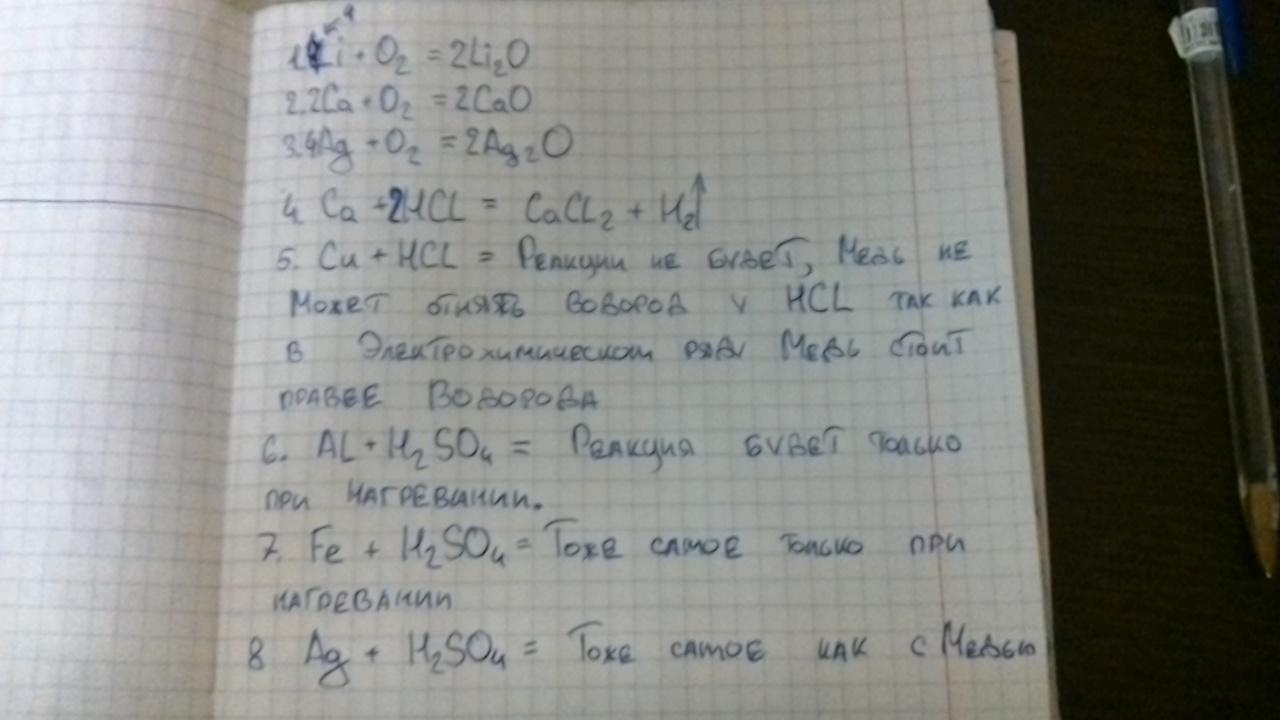 1. 4Li + O₂ = 2Li₂O
2. 2Ca + O₂ = 2CaO
3. 4Ag + O₂ = 2Ag₂O
4. Ca + 2HCL = CaCL₂ + H₂↑
5. Cu + HCL = Реакции не будет, Медь не
может отнять водород у HCL так как
в Электрохимическом ряду Медь стоит
правее Водорода
6. AL + H₂SO₄ = Реакция будет только
при нагревании.
7. Fe + H₂SO₄ = Тоже самое только при
нагревании
8 Ag + H₂SO₄ = Тоже самое как с Медью